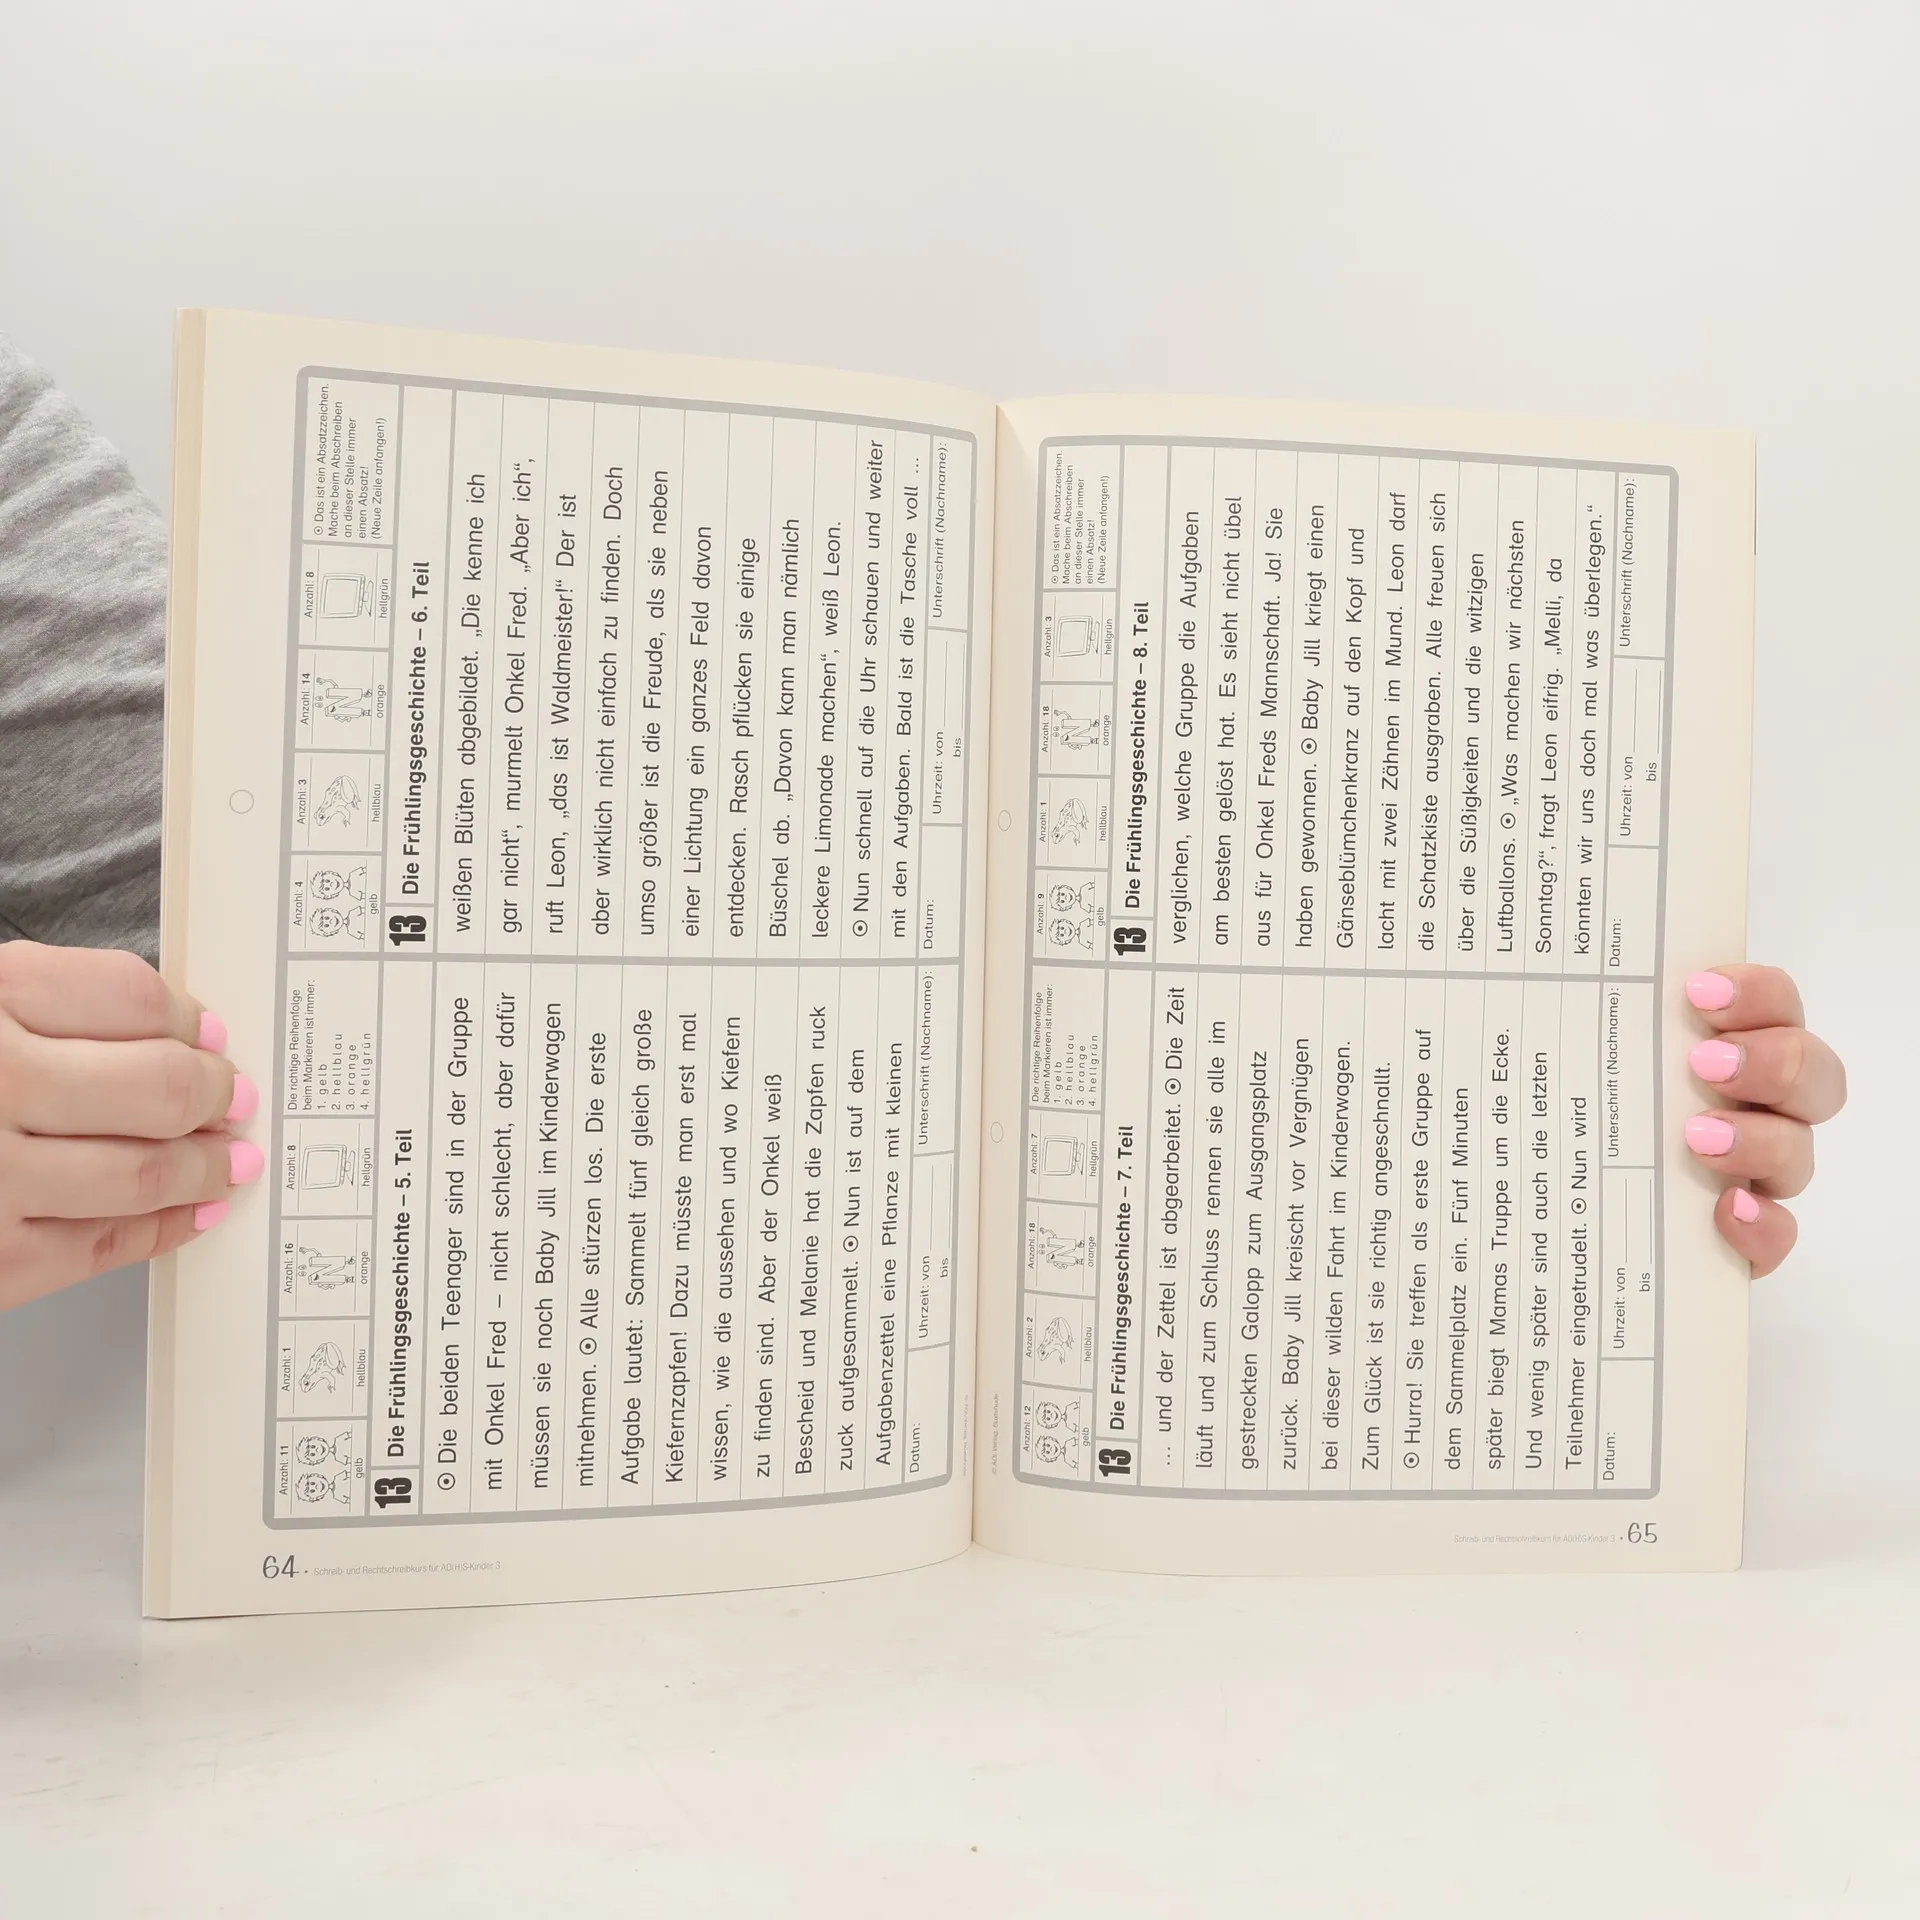 Anzahl: 11
gelb
Anzahl: 1
hellblau
Anzahl: 16
orange
Anzahl: 8
hellgrün
Die richtige Reihenfolge
beim Markieren ist immer:
1. gelb
2. hellblau
3. orange
4. hellgrün
13 Die Frühlingsgeschichte – 5. Teil
⊙ Die beiden Teenager sind in der Gruppe
mit Onkel Fred – nicht schlecht, aber dafür
müssen sie noch Baby Jill im Kinderwagen
mitnehmen. ⊙ Alle stürzen los. Die erste
Aufgabe lautet: Sammelt fünf gleich große
Kiefernzapfen! Dazu müsste man erst mal
wissen, wie die aussehen und wo Kiefern
zu finden sind. Aber der Onkel weiß
Bescheid und Melanie hat die Zapfen ruck
zuck aufgesammelt. ⊙ Nun ist auf dem
Aufgabenzettel eine Pflanze mit kleinen
Datum:
Uhrzeit: von
bis
Unterschrift (Nachname):
Anzahl: 4
gelb
Anzahl: 3
hellblau
Anzahl: 14
orange
Anzahl: 8
hellgrün
⊙ Das ist ein Absatzzeichen.
Mache beim Abschreiben
an dieser Stelle immer
einen Absatz!
(Neue Zeile anfangen!)
13 Die Frühlingsgeschichte – 6. Teil
weißen Blüten abgebildet. „Die kenne ich
gar nicht“, murmelt Onkel Fred. „Aber ich“,
ruft Leon, „das ist Waldmeister!“ Der ist
aber wirklich nicht einfach zu finden. Doch
umso größer ist die Freude, als sie neben
einer Lichtung ein ganzes Feld davon
entdecken. Rasch pflücken sie einige
Büschel ab. „Davon kann man nämlich
leckere Limonade machen“, weiß Leon.
⊙ Nun schnell auf die Uhr schauen und weiter
mit den Aufgaben. Bald ist die Tasche voll ...
Datum:
Uhrzeit: von
bis
Unterschrift (Nachname):
64 · Schreib- und Rechtschreibkurs für AD(H)S-Kinder 3
Anzahl: 12
gelb
Anzahl: 2
hellblau
Anzahl: 18
orange
Anzahl: 7
hellgrün
Die richtige Reihenfolge
beim Markieren ist immer:
1. gelb
2. hellblau
3. orange
4. hellgrün
13 Die Frühlingsgeschichte – 7. Teil
... und der Zettel ist abgearbeitet. ⊙ Die Zeit
läuft und zum Schluss rennen sie alle im
gestreckten Galopp zum Ausgangsplatz
zurück. Baby Jill kreischt vor Vergnügen
bei dieser wilden Fahrt im Kinderwagen.
Zum Glück ist sie richtig angeschnallt.
⊙ Hurra! Sie treffen als erste Gruppe auf
dem Sammelplatz ein. Fünf Minuten
später biegt Mamas Truppe um die Ecke.
Und wenig später sind auch die letzten
Teilnehmer eingetrudelt. ⊙ Nun wird
Datum:
Uhrzeit: von
bis
Unterschrift (Nachname):
Anzahl: 9
gelb
Anzahl: 1
hellblau
Anzahl: 18
orange
Anzahl: 3
hellgrün
⊙ Das ist ein Absatzzeichen.
Mache beim Abschreiben
an dieser Stelle immer
einen Absatz!
(Neue Zeile anfangen!)
13 Die Frühlingsgeschichte – 8. Teil
verglichen, welche Gruppe die Aufgaben
am besten gelöst hat. Es sieht nicht übel
aus für Onkel Freds Mannschaft. Ja! Sie
haben gewonnen. ⊙ Baby Jill kriegt einen
Gänseblümchenkranz auf den Kopf und
lacht mit zwei Zähnen im Mund. Leon darf
die Schatzkiste ausgraben. Alle freuen sich
über die Süßigkeiten und die witzigen
Luftballons. ⊙ „Was machen wir nächsten
Sonntag?“, fragt Leon eifrig. „Melli, da
könnten wir uns doch mal was überlegen.“
Datum:
Uhrzeit: von
bis
Unterschrift (Nachname):
Schreib- und Rechtschreibkurs für AD(H)S-Kinder 3 · 65